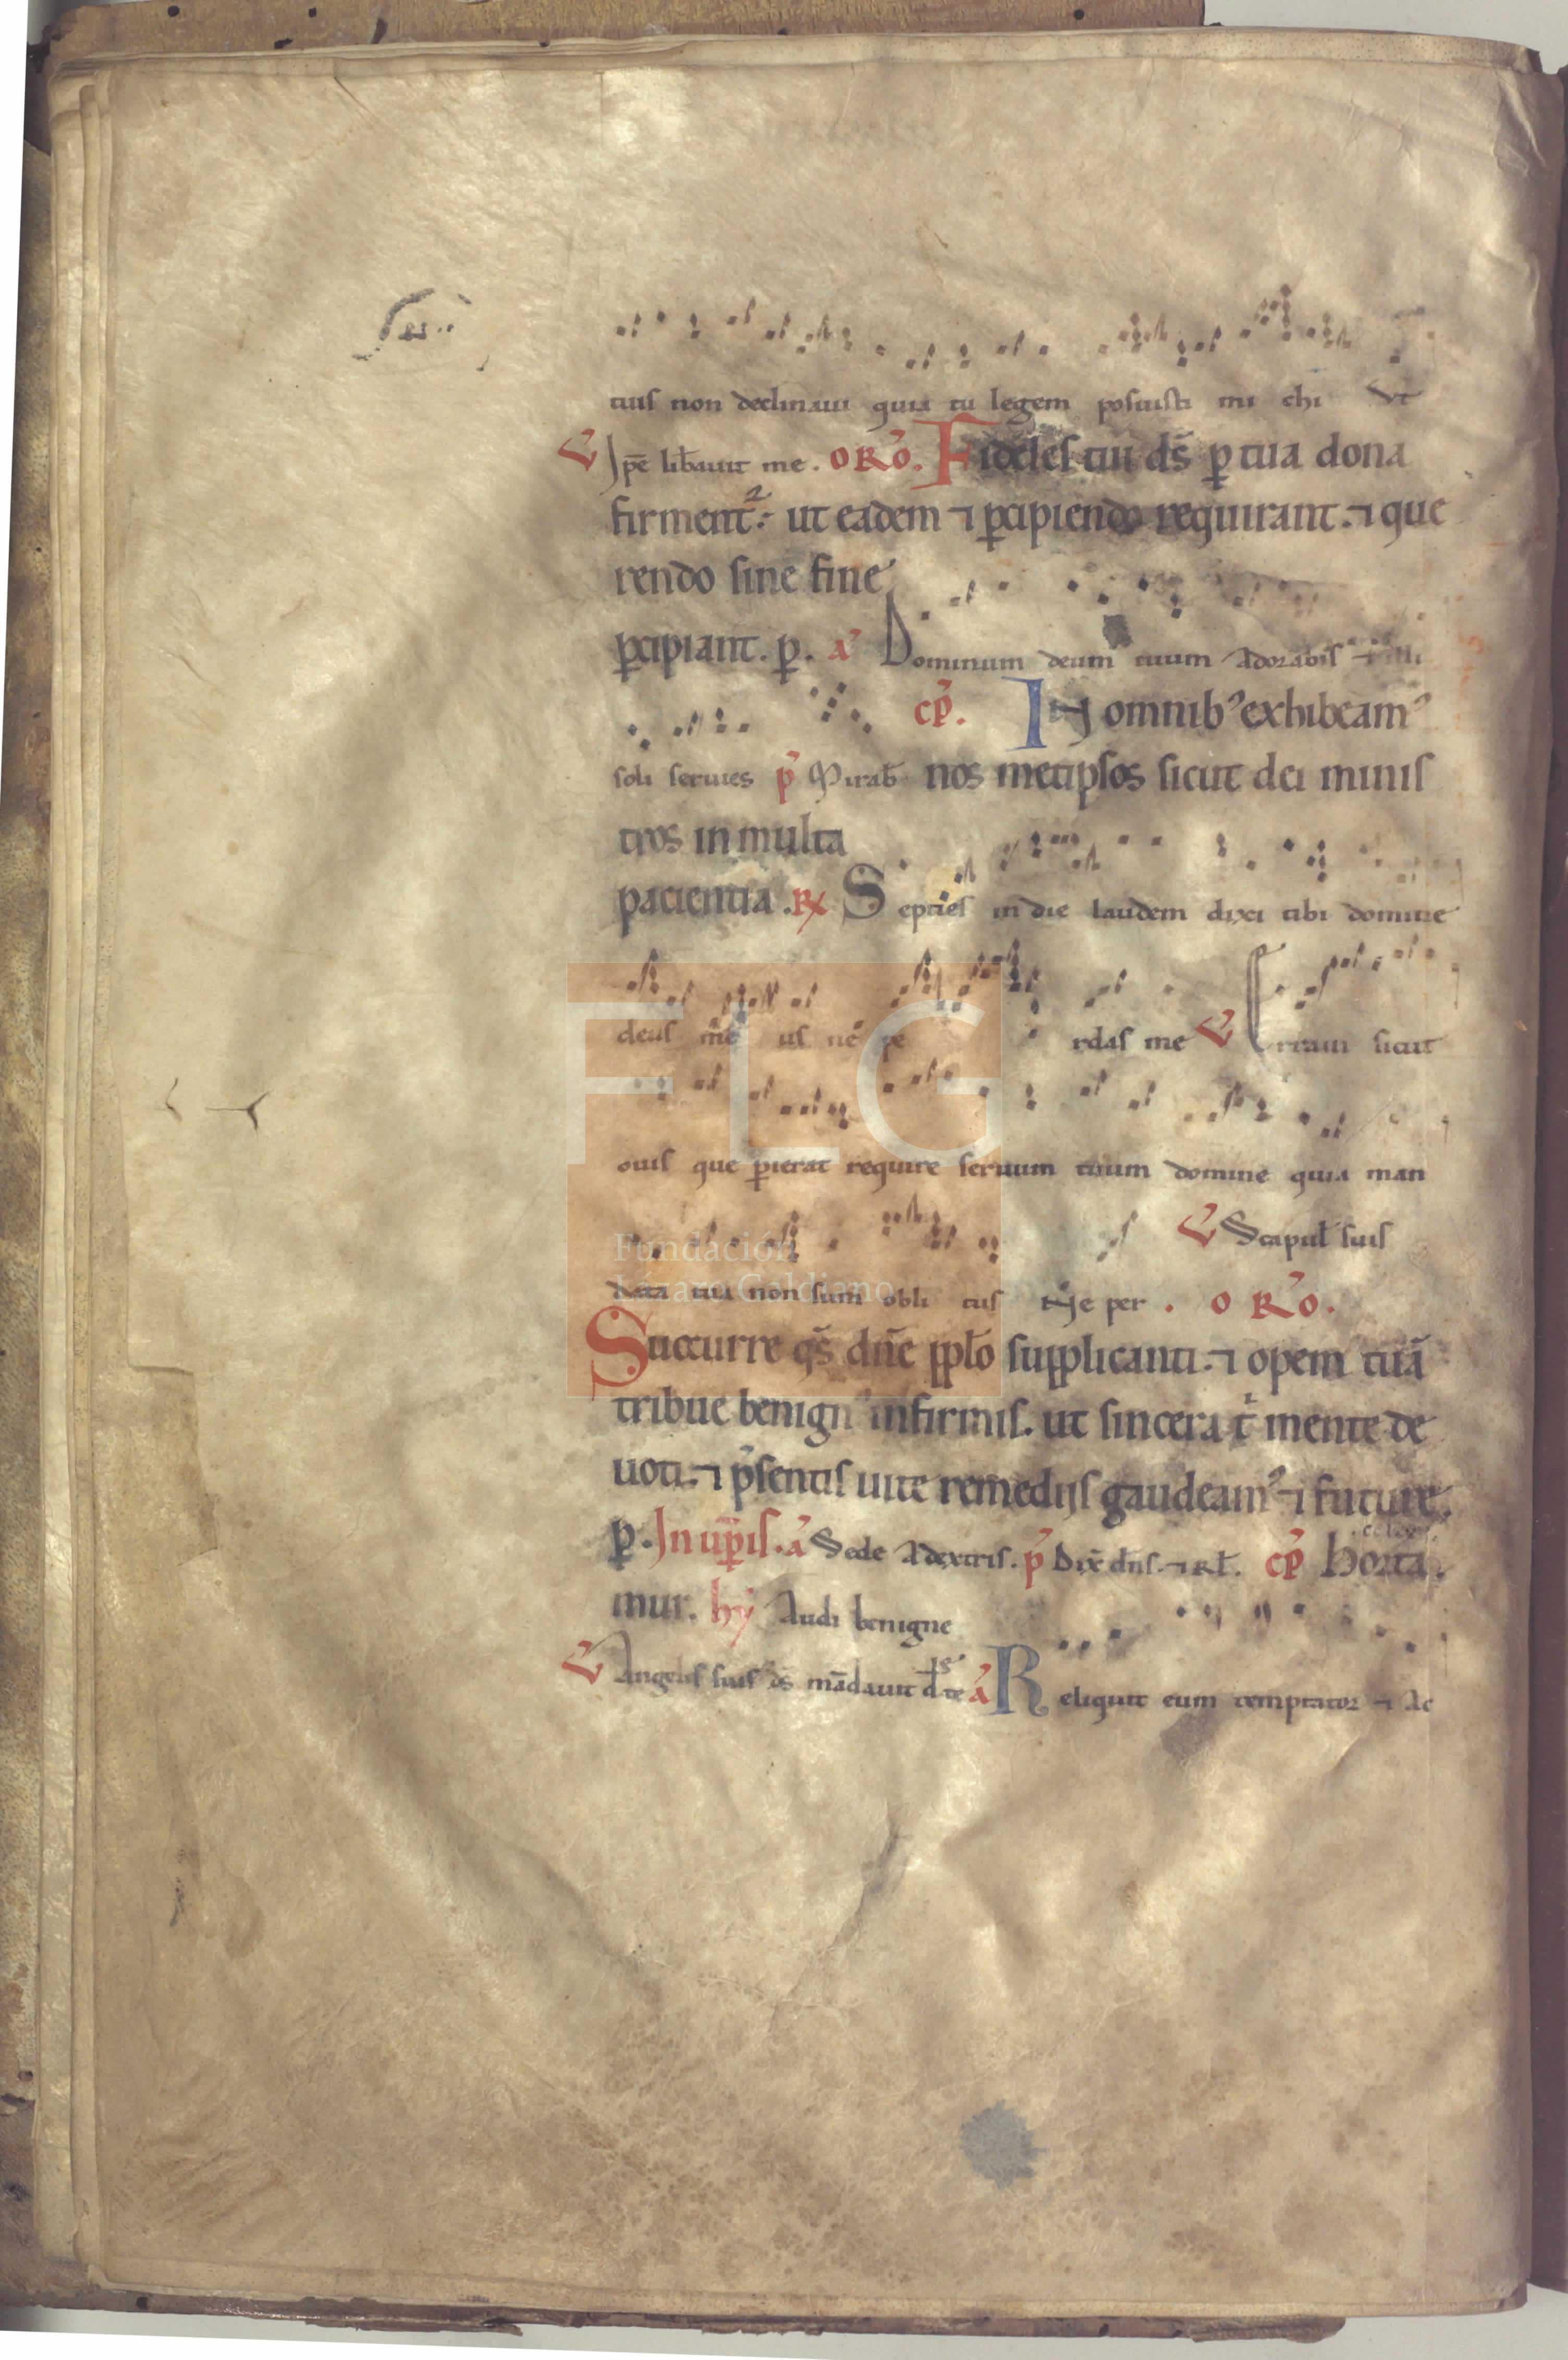 tuis non declinaui quia tu legem posuisti mi chi Vt
℣ Ipē lib̄auit me. ORO. Fideles tui dS̄ ꝑ tua dona
firment᷑: ut eadem ⁊ ꝑcipiendo requirant. ⁊ que
rendo sine fine
ꝑcipiant. ꝑ. a Dominum deum tuum adorabis ⁊ illi
cp̄. IN omnibꝰ exhibeamꝰ
soli seruies p̄ Mirab̄ nos metipsos sicut dei minis
tros in multa
pacientia. ℟ Septies in die laudem dixi tibi domine
deus me us ne pe rdas me ℣ Erraui sicut
ouis que ꝑierat require seruum tuum domine quia man
℣ Scapul̄ suis
data tua non sum obli tus Ne per. ORO.
Succurre qs̄ dn̄e ppl̄o supplicanti. ⁊ opem tuā
tribue benignꝰ infirmis. ut sincera t̄ mente de
uoti. ⁊ p̄sentis uite remediis gaudeamꝰ ⁊ future.
ꝑ. In uꝑis. a Sede adextris. p̄ Dix̄ dn̄s. ⁊ Rl̄. cp̄ Horta
mur. hy Audi benigne
℣ Angelis suis ds̄ mādauit d te a Reliquit eum temptator ⁊ Ac
FLG
Fundación
Lázaro Galdiano